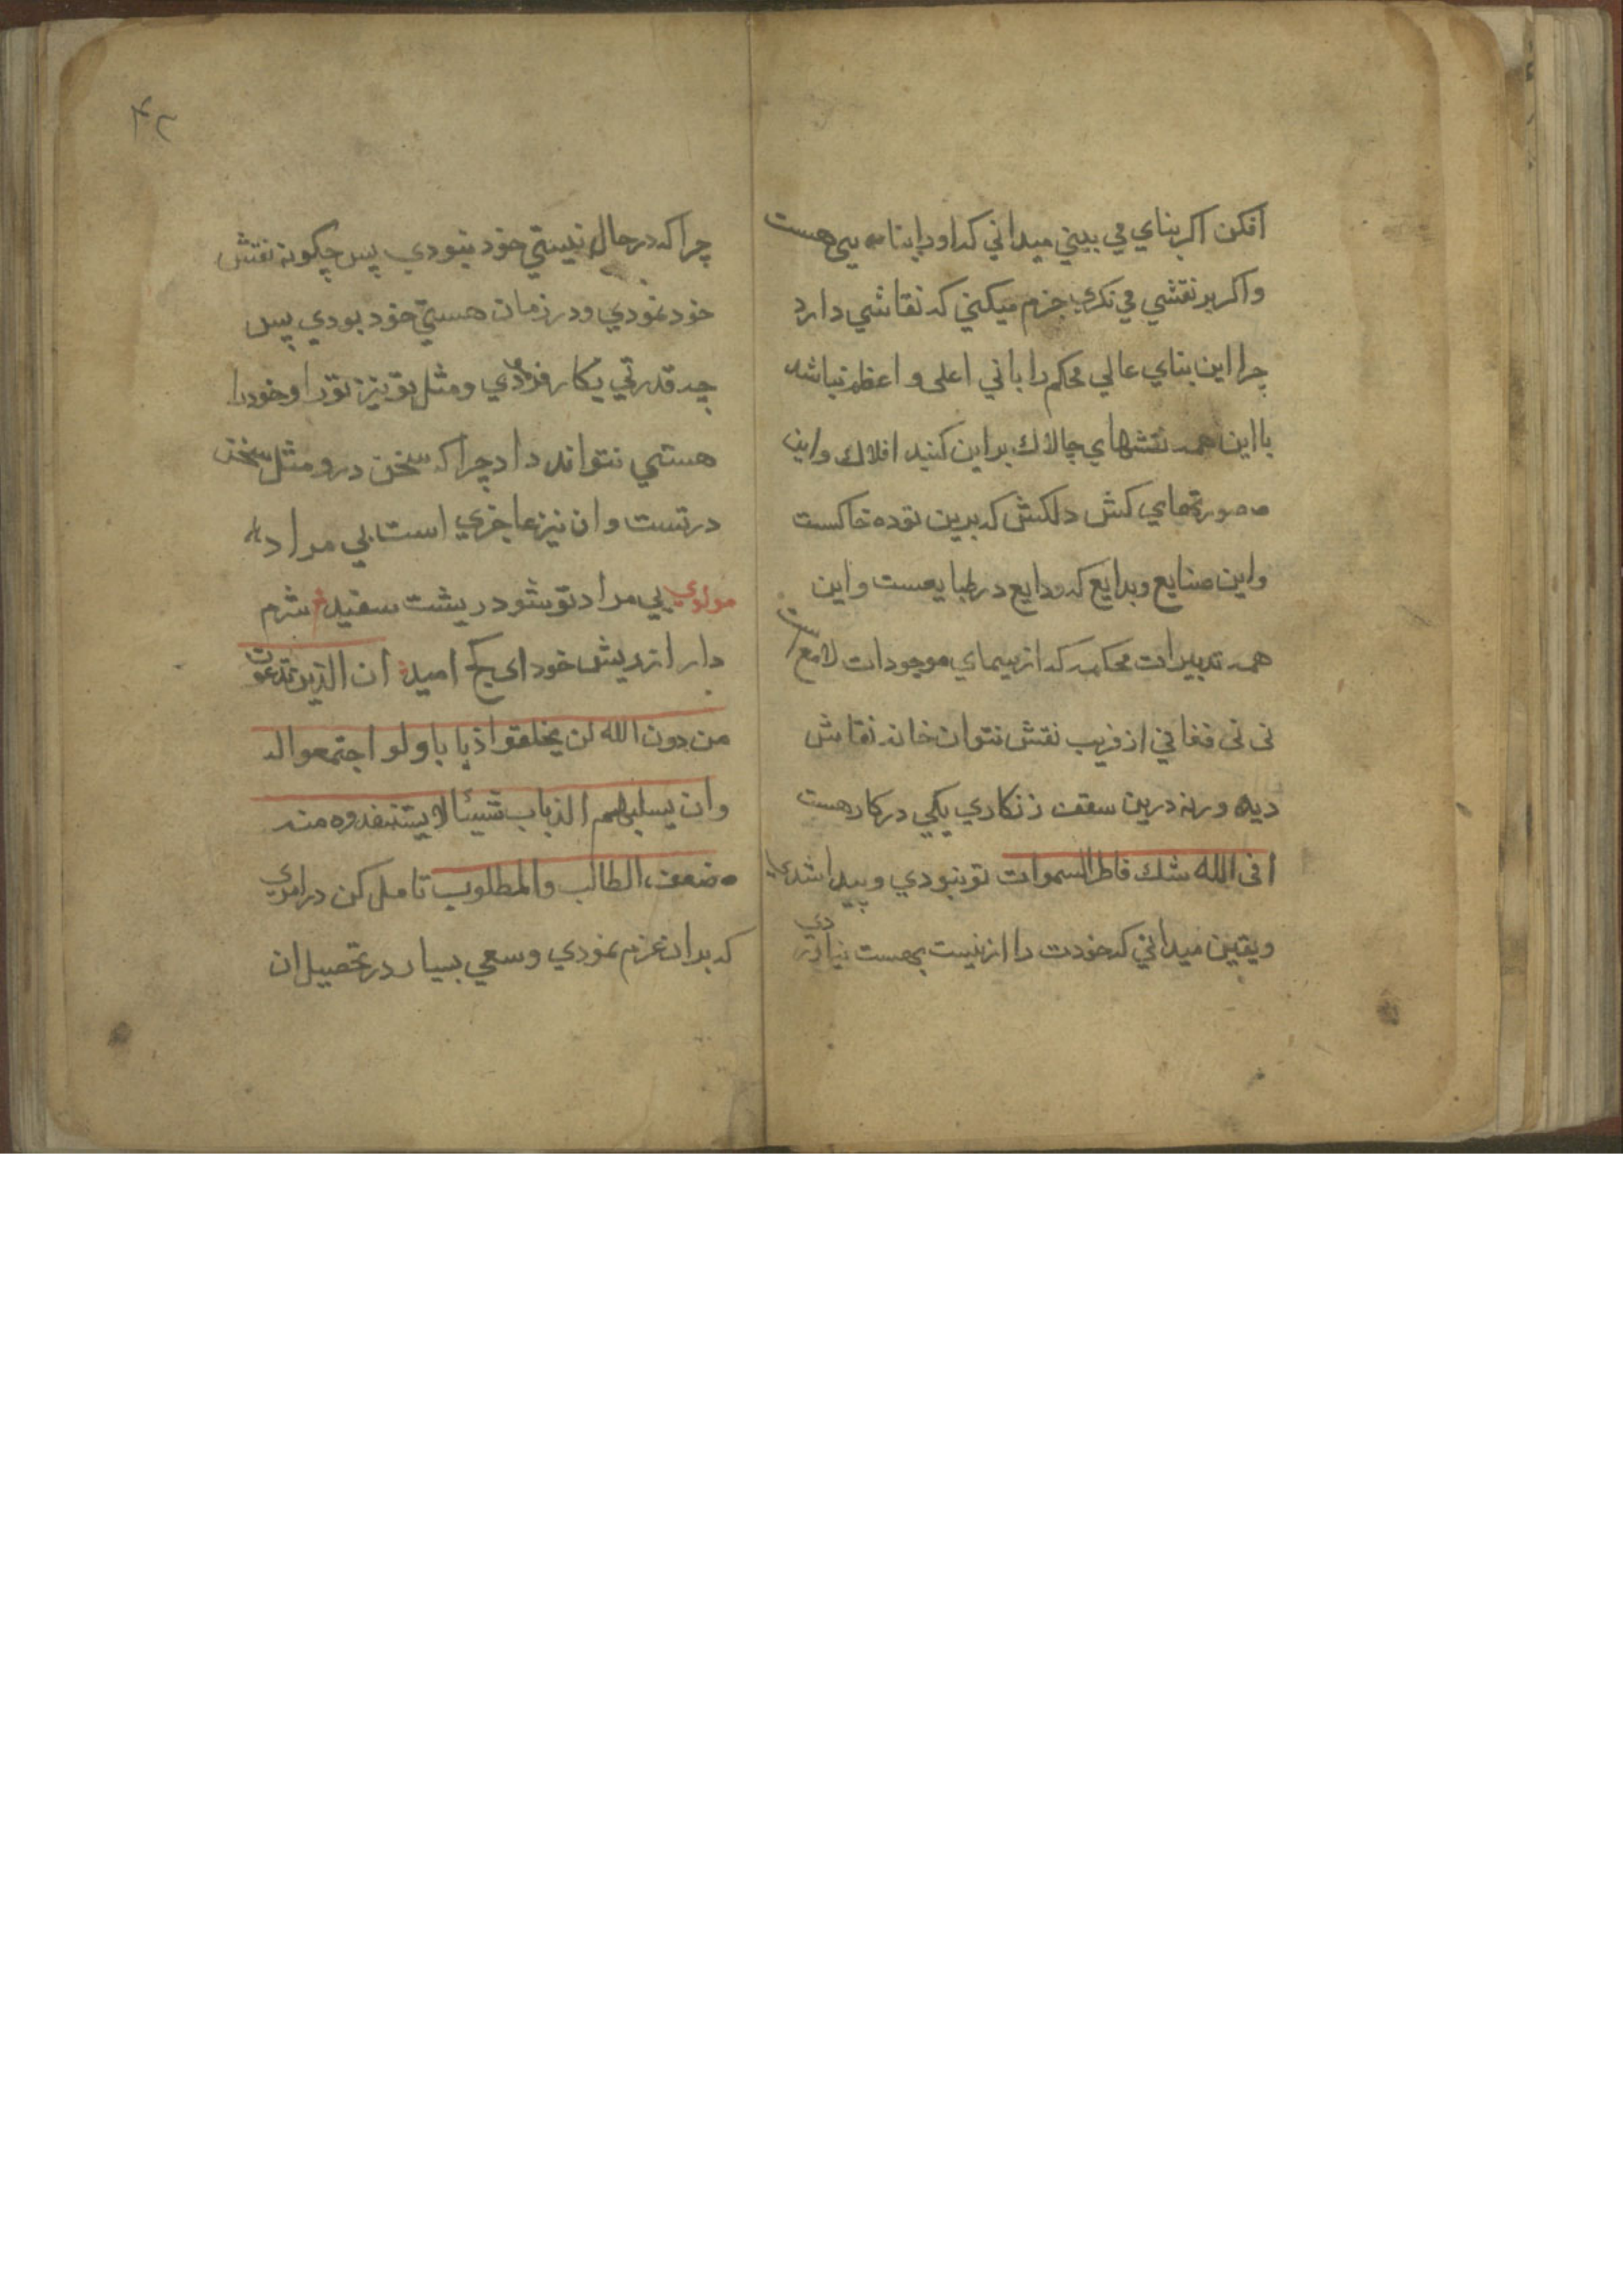 افكن اكر بناي مي بيني ميداني كه اورا بنا يي هست
واكر بر نقشي مي نكري جزم ميكني كه نقاشي دارد
چرا اين بناي عالي محكم را باني اعلى و اعظم نباشد
با اين همه نقشهاي چالاك براين كنبد افلاك واين
صورتهاي كش دلكش كه برين توده خاكست
واين صنايع وبدايع كه ودايع در طبايعست واين
همه تدبيرات محكمه كه از سيماي موجودات لامع است
نى نى فغاني از فريب نقش نتوان خانه نقاش
ديد ورنه درين سقف زنكاري يكي دركار هست
افى الله شك فاطر السموات تو نبودي و پيدا شدي
ويقين ميداني كه خودت را از نيست بهست نياوردي
چرا كه در حال نيستي خود نبودي پس چكونه نقش
خود نمودي ودر زمان هستي خود بودي پس
چه قدرتي بكار فرمودي ومثل تو نيز تورا وخود را
هستي نتواند داد چرا كه سخن درو مثل سخن
درتست وان نيز عاجزي است بي مراد
مولوي بي مراد تو شود ريشت سفيد شرم
دار از ريش خود اى كج اميد ان الذين تدعون
من دون الله لن يخلقوا ذبابا ولو اجتمعوا له
وان يسلبهم الذباب شيئا لا يستنفذوه منه
ضعف الطالب والمطلوب تامل كن در امري
كه بران عزم نمودي وسعي بسيار در تحصيل ان